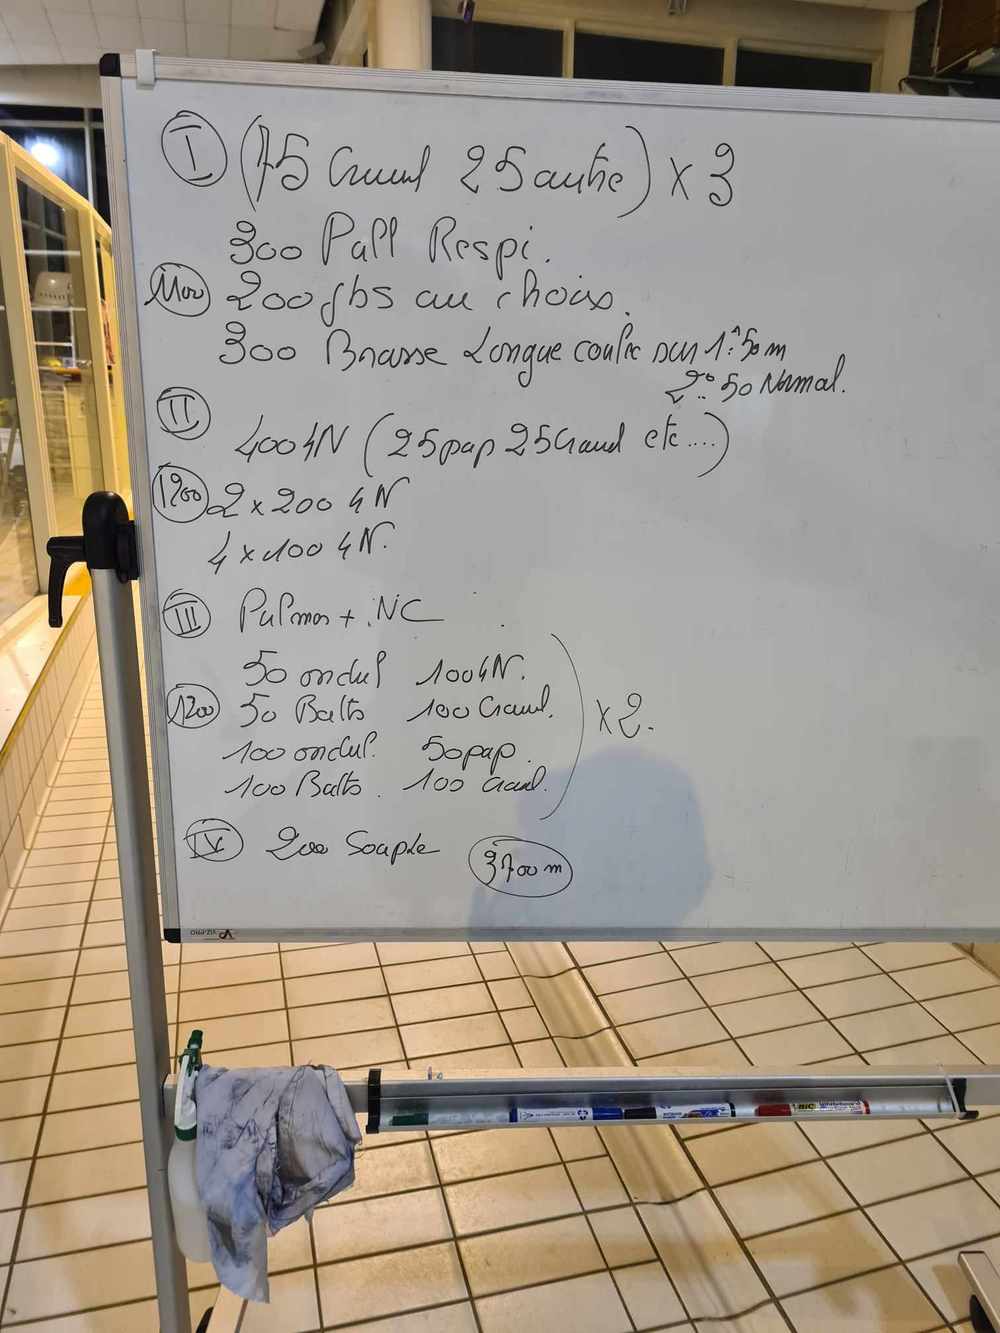 I (75 Crawl 25 autre) x 3
300 Pull Respi.
1100 200 jbs au choix.
300 Brasse Longue coulée sur 1: 50 m
2: 50 Normal.
II
400 4N (25 pap 25 Crawl etc....)
1200 2 x 200 4N
4 x 100 4N.
III Palmes + NC
50 ondul 100 4N.
1200 50 Batts 100 Crawl. x 2.
100 ondul. 50 pap.
100 Batts. 100 Crawl.
IV 200 Souple 3700 m
VIZ-PRO
BIC Whiteboard